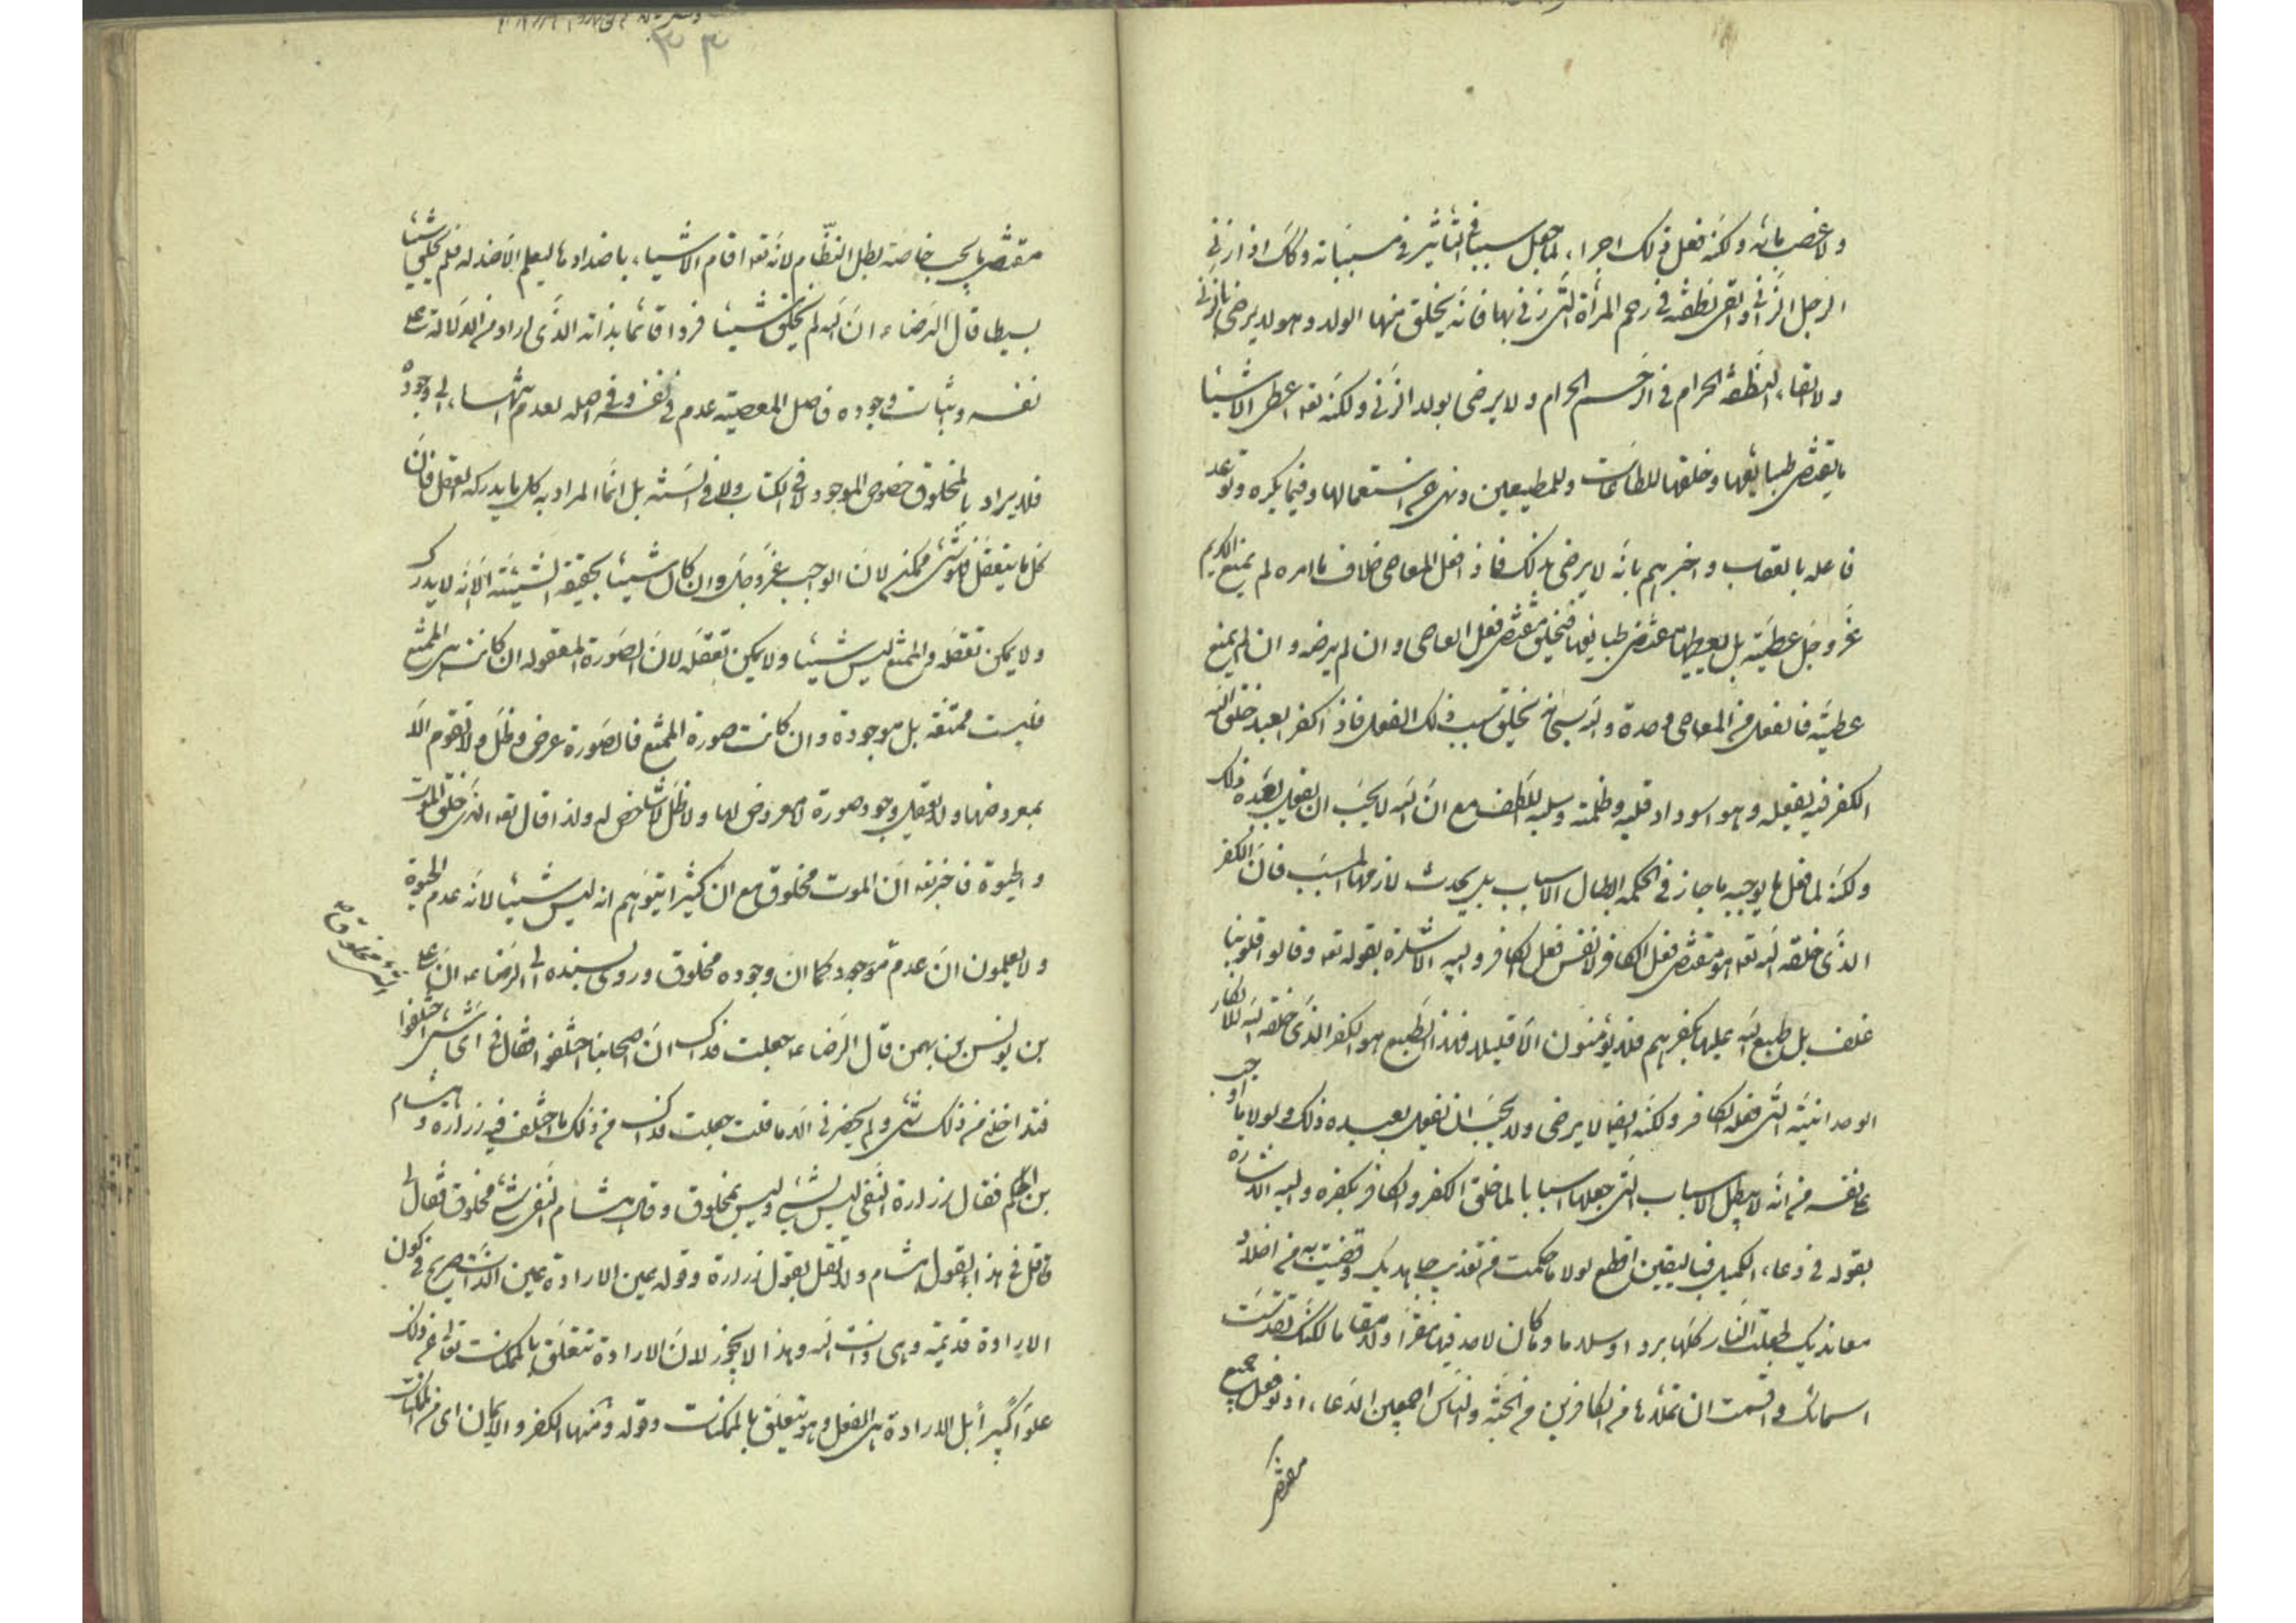 ولا غصب مائه ولكنه فعل ذلك اجراء لما جعل سببا في التأثير في مسبباته وكذلك اذا زنى
الرجل الزاني والقى نطفته في رحم المرأة التي زنى بها فانه يخلق منها الولد وهو لم يرض بالزنى
ولا بالقاء النطفة الحرام في الرحم الحرام ولا يرضى بولد الزنى ولكنه تعه اعطى الاشياء
ما يقتضى طبايعها وخلقها للطاعات وللمطيعين ونهى عن استعمالها فيما يكره وتوعد
فاعله بالعقاب واخبرهم بانه لا يرضى بذلك فاذا فعل المعاصى خلاف ما امره لم يمنع الكريم
عز وجل عطيته بل يعطيها مقتضى طبايعها فيخلق مقتضى فعل العاصى وان لم يرضه وان لم يمنع
عطيته فالفعل من المعاصى وحده والله سبحانه يخلق بسبب ذلك الفعل فاذا كفر العبد خلق الله
الكفر فيه بفعله وهو اسوداد قلبه وظلمته وسلبه للطف مع ان الله لا يحب ان يفعل بعبده ذلك
ولكنه لما فعل ما يوجبه ما جاز في الحكمة ابطال الاسباب بل يحدث لازمها المسبب فان الكفر
الذى خلقه الله تعه هو مقتضى فعل الكافر لا نفس فعل الكافر واليه الاشارة بقوله تعه وقالوا قلوبنا
غلف بل طبع الله عليها بكفرهم فلا يؤمنون الا قليلا فهذا الطبع هو الكفر الذى خلقه الله للانكار
الوحدانية التي فعله الكافر ولكنه ايضا لا يرضى ولا يحب ان يفعل بعبده ذلك ولولا ما اوجب
على نفسه من انه لا يبطل الاسباب التي جعلها اسبابا لما خلق الكفر والكافر بكفره واليه الاشارة
بقوله في دعاء الكميل فباليقين اقطع لولا ما حكمت من تعذيب جاحديك وقضيت به من اخلاد
معانديك لجعلت النار كلها بردا وسلاما وما كان لاحد فيها مقرا ولا مقاما لكنك تقدست
اسمائك اقسمت ان تملأها من الكافرين من الجنة والناس اجمعين الدعاء اذ لو فعل جميع
مقتضى
٣٣
مقتضى ما يحب خاصة لبطل النظام لانه تعه اقام الاشياء باضدادها ليعلم الا ضد له فلم يخلق شيئا
بسيطا قال الرضاء ان الله لم يخلق شيئا فردا قائما بذاته الذى اراد من الدلالة على
نفسه واثبات وجوده فاصل المعصية عدم في نفسه وفي اصله لعدم انتهاءها الى وجوده
فلا يراد بالمخلوق خصوص الموجود لا في الكتاب ولا في السنة بل انما المراد به كل ما يدركه العقل فان
كل ما يتعقل فهو شئ ممكن لان الواجب عز وجل وان كان شيئا بحقيقة الشيئية الا انه لا يدرك
ولا يمكن تعقله والممتنع ليس شيئا ولا يمكن تعقله لان الصورة المعقولة ان كانت هى الممتنع
فليست ممتنعة بل موجودة وان كانت صورة الممتنع فالصورة عرض وظل ولا تقوم الا
بمعروضها ولا يعقل وجود صورة لا معروض لها ولا ظل لا شاخص له ولذا قال تعه الذى خلق الموت
والحيوة فاخبر تعه ان الموت مخلوق مع ان كثيرا يتوهم انه ليس شيئا لانه عدم الحيوة
ولا يعلمون ان عدم موجود كما ان وجوده مخلوق وروى بسنده الى الرضاء ان على
بن يونس بن بهمن قال للرضاء جعلت فداك ان اصحابنا اختلفوا فقال في اى شئ اختلفوا
فتداخلنى من ذلك شئ ولم يحضرنى الا ما قلت جعلت فداك من ذلك ما اختلف فيه زرارة وهشام
بن الحكم فقال زرارة النفى ليس بشئ وليس بمخلوق وقال هشام النفى شئ مخلوق فقال لى
قل في هذا بقول هشام ولا تقل بقول زرارة وقوله بمعين الارادة عين الذات تصريح في كون
الارادة قديمة وهى ذات الله وهذا لا يجوز لان الارادة تتعلق بالممكنات تعه عن ذلك
علوا كبيرا بل الارادة هى الفعل وهو يتعلق بالممكنات وقوله ومنها الكفر والايمان اى من الممكنات